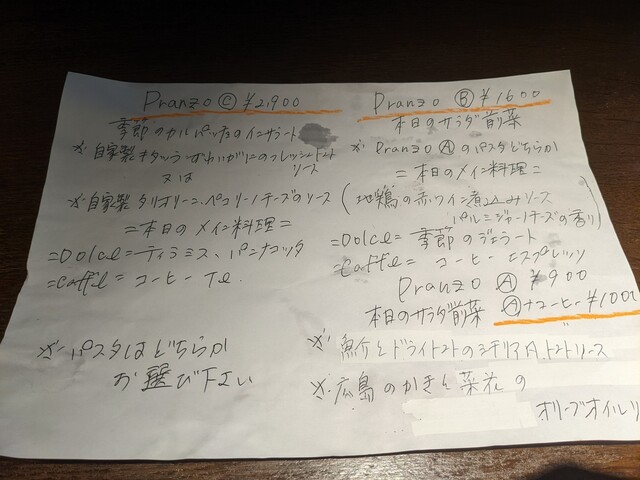 Pranzo Ⓒ ¥2,900
季節のカルパッチョのインサラート
※ 自家製キタッラ ずわいがにのフレッシュトマト
ソース
又は
※ 自家製タリオリーニ、ペコリーノチーズのソース
=本日のメイン料理=
=Dolce= ティラミス、パンナコッタ
=Caffe= コーヒー Te.
※ パスタはどちらか
お選び下さい
Pranzo Ⓑ ¥1600
本日のサラダ前菜
※ Pranzo Ⓐ のパスタどちらか
=本日のメイン料理=
(地鶏の赤ワイン煮込みソース
パルミジャーノチーズの香り)
=Dolce= 季節のジェラート
=Caffe= コーヒー エスプレッソ
Pranzo Ⓐ ¥900
本日のサラダ前菜 Ⓐ+コーヒー ¥1000
※ 魚介とドライトマトのシチリア風トマトソース
※ 広島のかきと菜花の
オリーブオイル